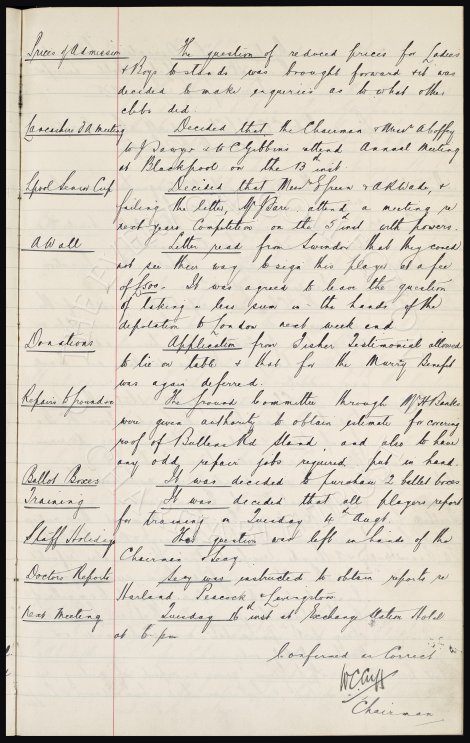 Prices of Admission The question of reduced prices for Ladies
& Boys to stands was brought forward & it was
decided to make enquiries as to what other
clubs did.
Lancashire F A meeting Decided that the Chairman & Messrs A Coffey
W J Sawyer & W C Gibbins attend Annual Meeting
at Blackpool on the 13th inst
Lpool Senior Cup Decided that Messrs Green & A R Wade, &
failing the letter, Mr attend a meeting re
next years Competition on the 3rd inst with powers.
A Wall Letter read from Swindon that they could
not see their way to sign this player at a fee
of £300. It was agreed to leave the question
of taking a less sum in the hands of the
deputation to London next week end
Donations Application from Fisher Testimonial allowed
to lie on table & that for the Murray Benefit
was again deferred.
Repairs to Ground The Ground Committee through Mr H Banks
were given authority to obtain estimate for covering
roof of Bullens Rd Stand and also to have
any odd repair jobs required put in hand.
Ballot Boxes It was decided to purchase 2 ballot boxes
Training It was decided that all players report
for training on Tuesday 4th Augt.
Staff Holidays This question was left in hands of the
Chairman & Secy.
Doctors Reports Secy was instructed to obtain reports re
Harland Peacock & Livingstone
Next Meeting Tuesday 16th inst at Exchange Station Hotel
at 6 pm
Confirmed as Correct
W.C. Cuff
Chairman